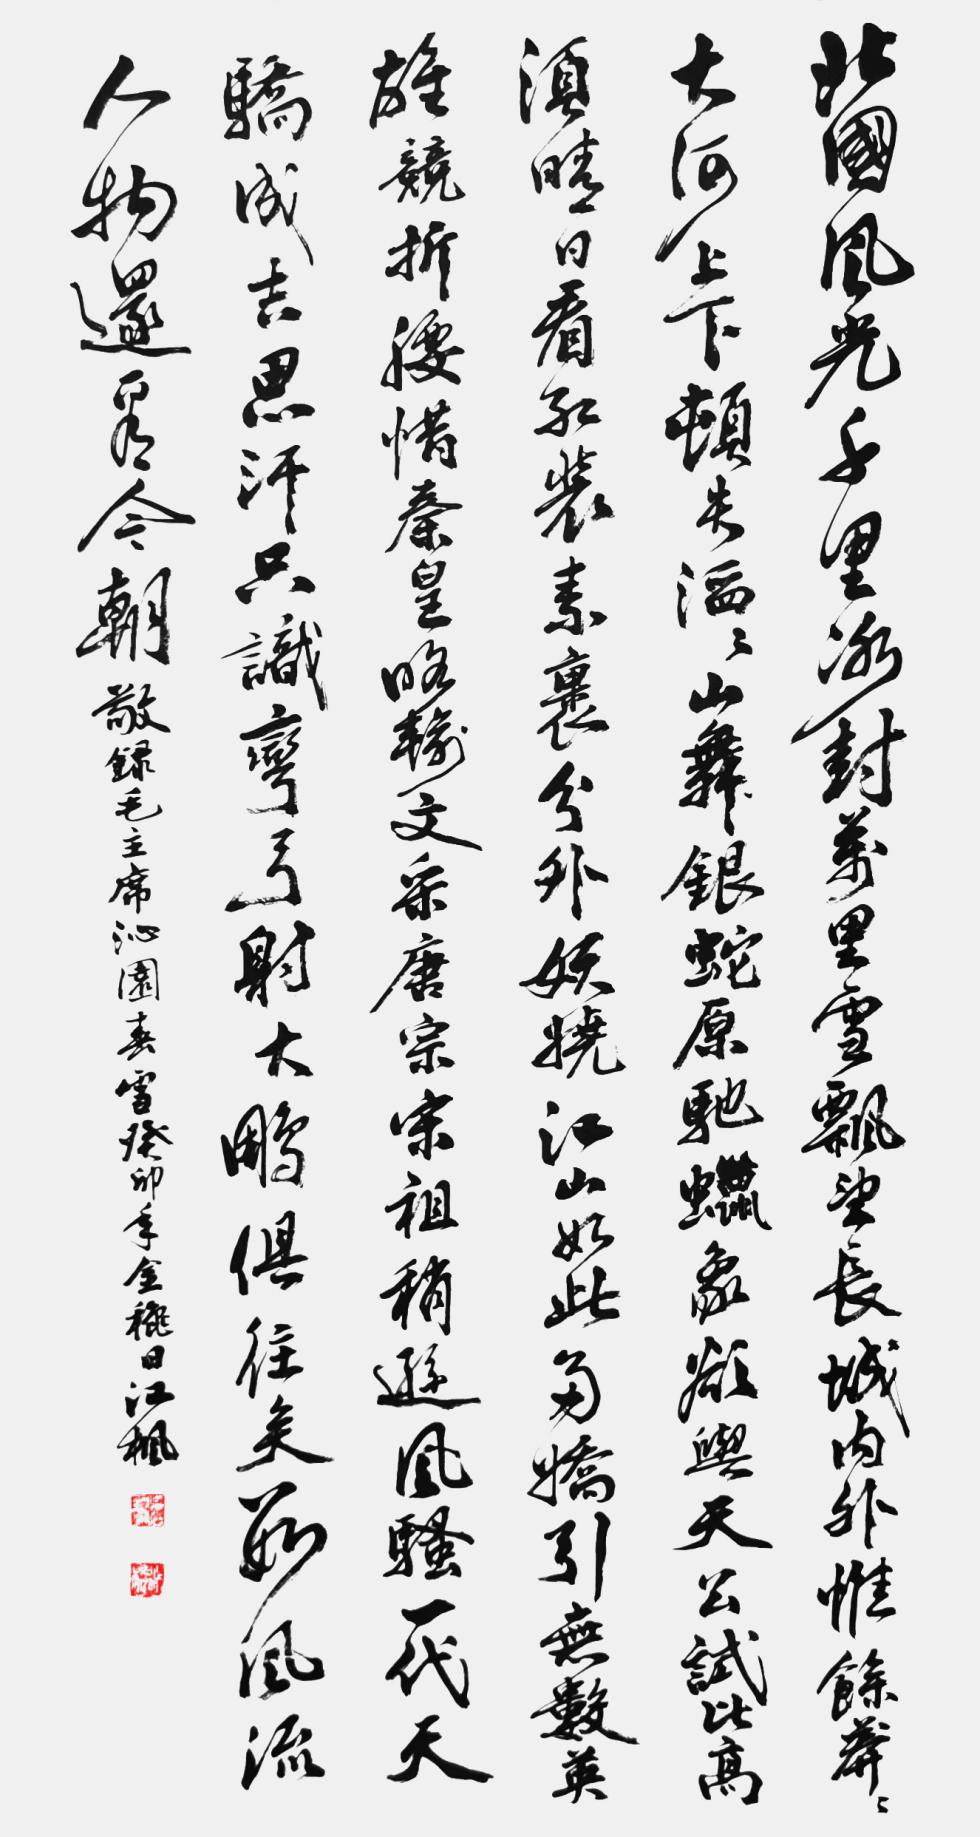 北國風光千里冰封萬里雪飄望長城内外惟餘莽〻
大河上下頓失滔〻山舞銀蛇原馳蠟象欲與天公試比高
湏晴日看紅裝素裹分外妖嬈江山如此多嬌引無數英
雄競折腰惜秦皇略輸文采唐宗宋祖稍遜風騷一代天
驕成吉思汗只識彎弓射大鵰俱往矣數風流
人物還看今朝 敬録毛主席沁園春雪癸卯年金穐日江楓